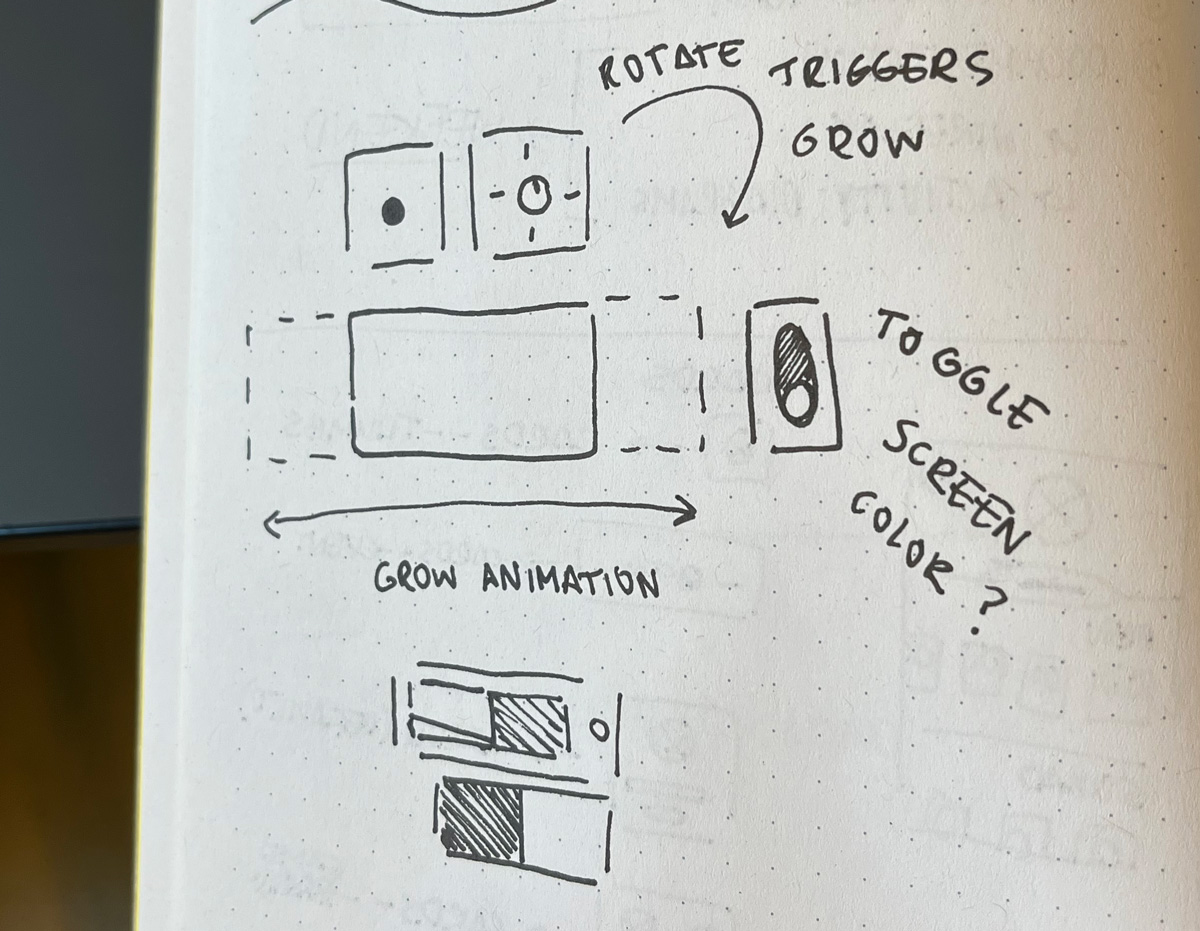 ROTATE TRIGGERS
GROW
TOGGLE
SCREEN
COLOR ?
GROW ANIMATION